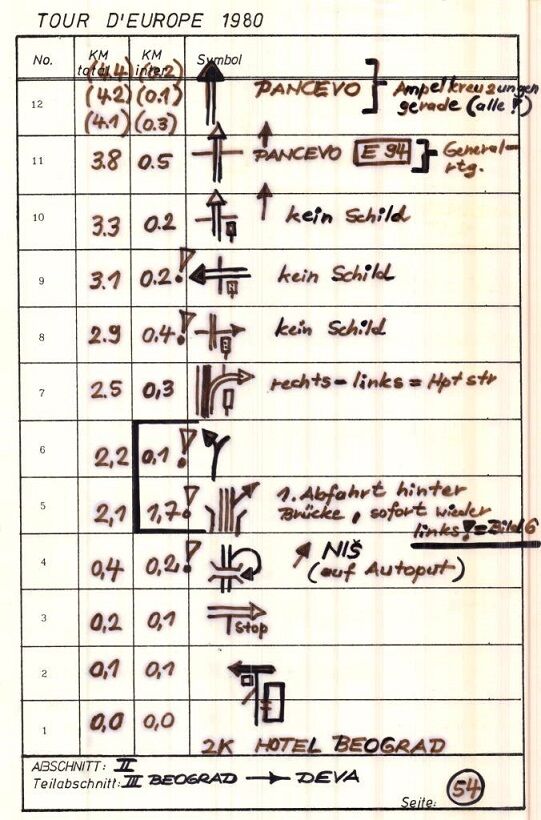 TOUR D'EUROPE 1980
No. KM total KM inter Symbol
(4.4) (0.2)
12 (4.2) (0.1) PANCEVO } Ampelkreuzungen
(4.1) (0.3) gerade (alle !)
11 3.8 0.5 PANCEVO E 94 } General-
rtg.
10 3.3 0.2 kein Schild
9 3.1 0.2! kein Schild
8 2.9 0.4! kein Schild
7 2.5 0,3 rechts - links = Hptstr
6 2,2 0,1!
5 2,1 1,7! 1. Abfahrt hinter
Brücke, sofort wieder
links! = Bild 6
4 0,4 0,2! NIŠ
(auf Autoput)
3 0,2 0,1 Stop
2 0,1 0,1
1 0,0 0,0
2K HOTEL BEOGRAD
ABSCHNITT: II
Teilabschnitt: III BEOGRAD → DEVA
Seite: 54